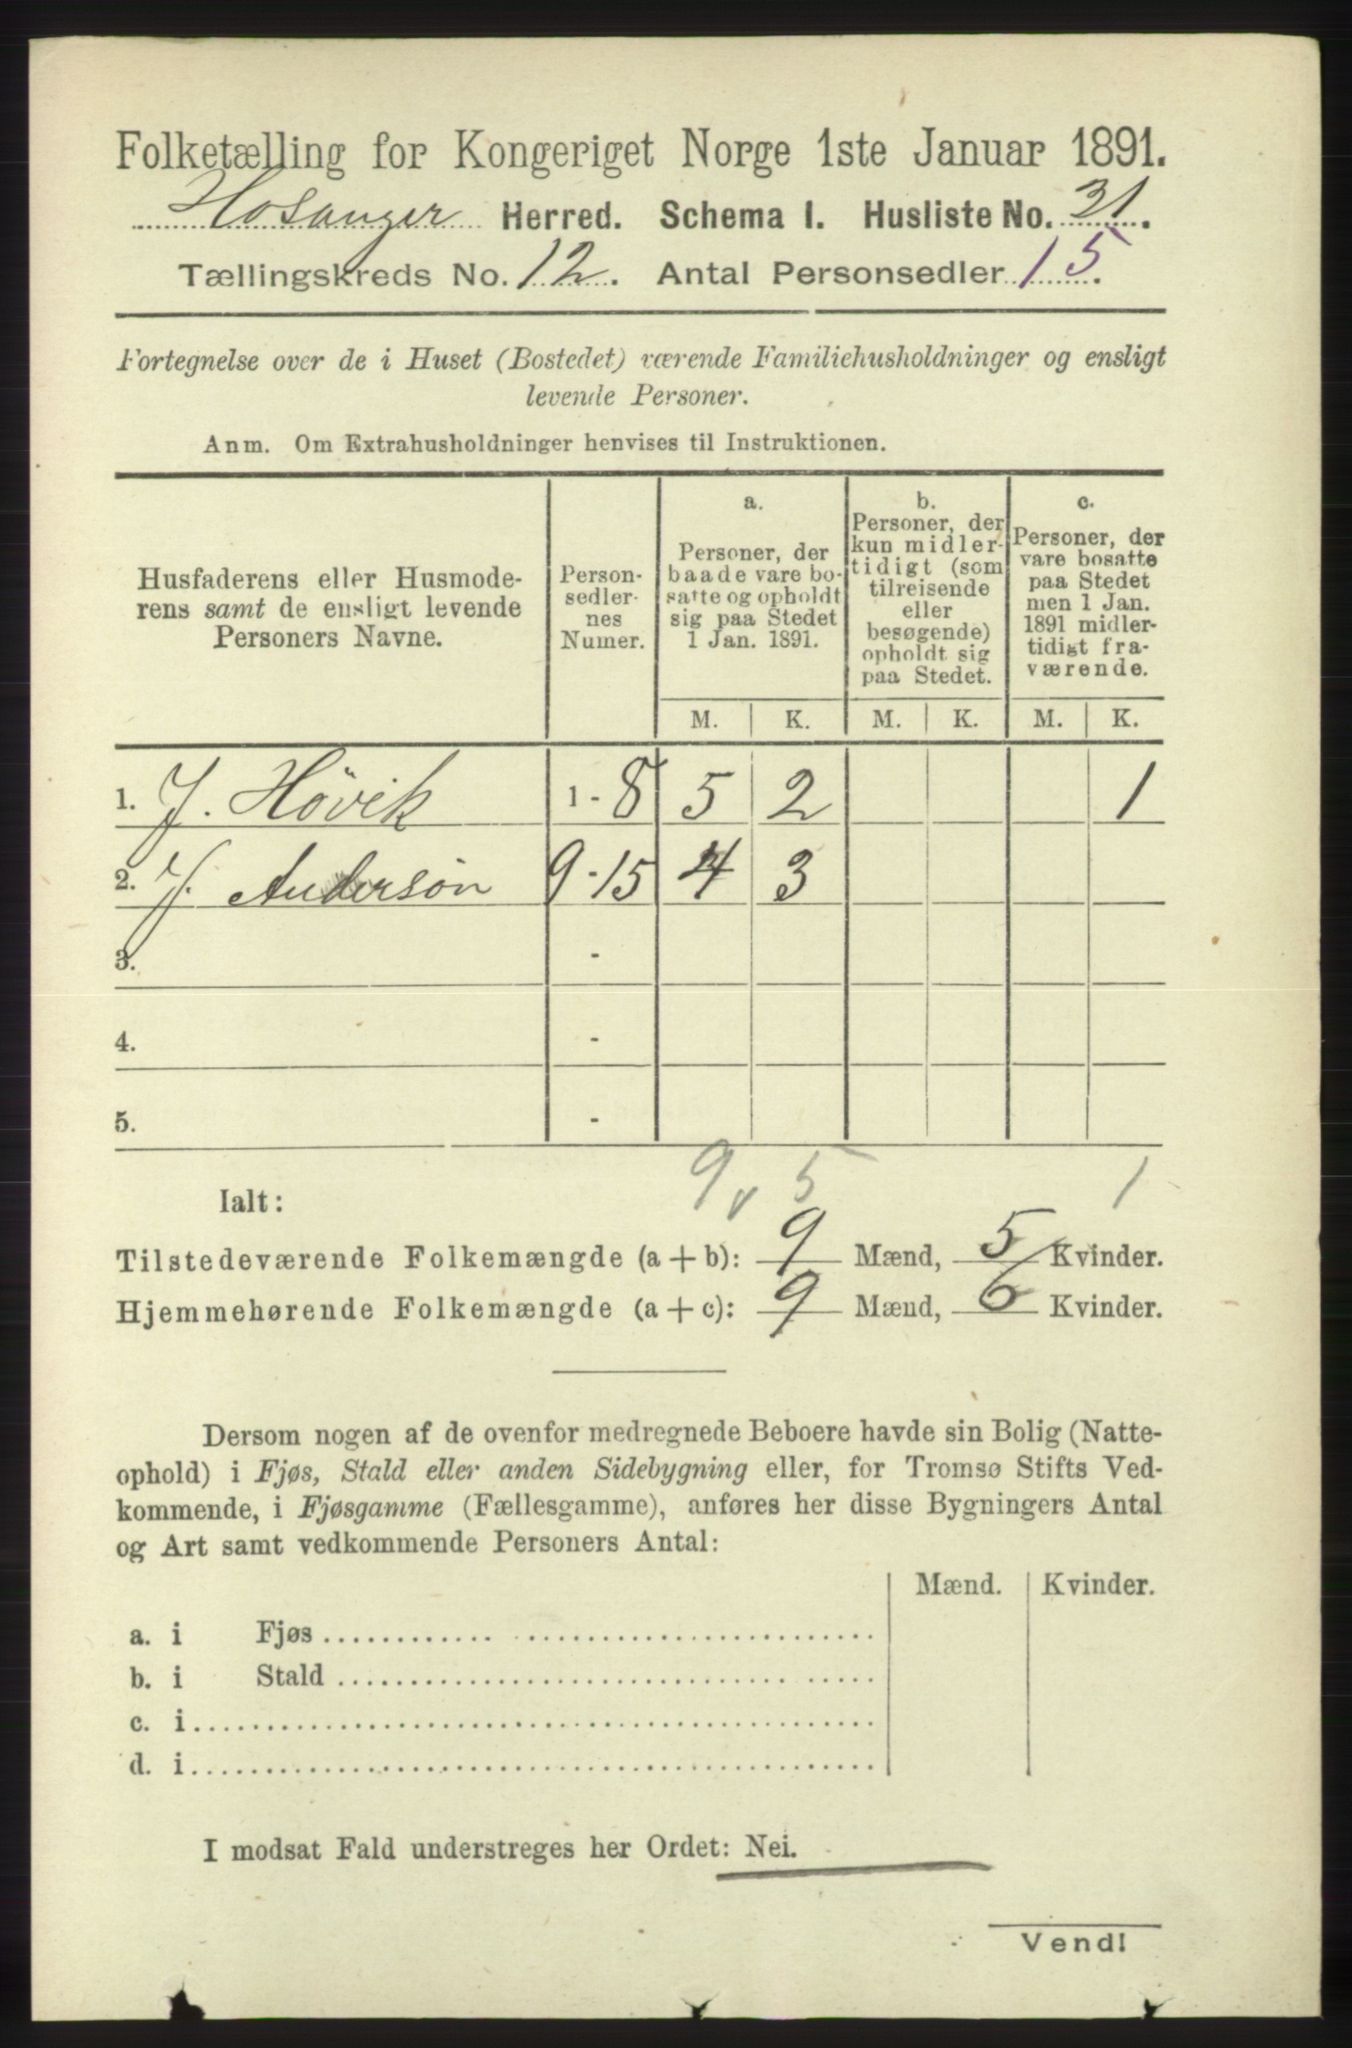 Folketælling for Kongeriget Norge 1ste Januar 1891.
Hosanger Herred. Schema I. Husliste No. 31.
Tællingskreds No. 12. Antal Personsedler 15.
Fortegnelse over de i Huset (Bostedet) værende Familiehusholdninger og ensligt
levende Personer.
Anm. Om Extrahusholdninger henvises til Instruktionen.
Husfaderens eller Husmode-
rens samt de ensligt levende
Personers Navne.
Person-
sedler-
nes
Numer.
a.
Personer, der
baade vare bo-
satte og opholdt
sig paa Stedet
1 Jan. 1891.
b.
Personer, der
kun midler-
tidigt (som
tilreisende
eller
besøgende)
opholdt sig
paa Stedet.
c.
Personer, der
vare bosatte
paa Stedet
men 1 Jan.
1891 midler-
tidigt fra-
værende.
M. K. M. K. M. K.
1. J. Hövik 1 - 8 5 2 1
2. J. Anderson 9 - 15 4 3
3. -
4. -
5. -
9 5 1
Ialt:
Tilstedeværende Folkemængde (a + b): 9 Mænd, 5 Kvinder.
Hjemmehørende Folkemængde (a + c): 9 Mænd, 6 Kvinder.
Dersom nogen af de ovenfor medregnede Beboere havde sin Bolig (Natte-
ophold) i Fjøs, Stald eller anden Sidebygning eller, for Tromsø Stifts Ved-
kommende, i Fjøsgamme (Fællesgamme), anføres her disse Bygningers Antal
og Art samt vedkommende Personers Antal:
Mænd. Kvinder.
a. i Fjøs
b. i Stald
c. i
d. i
I modsat Fald understreges her Ordet: Nei.
Vend!